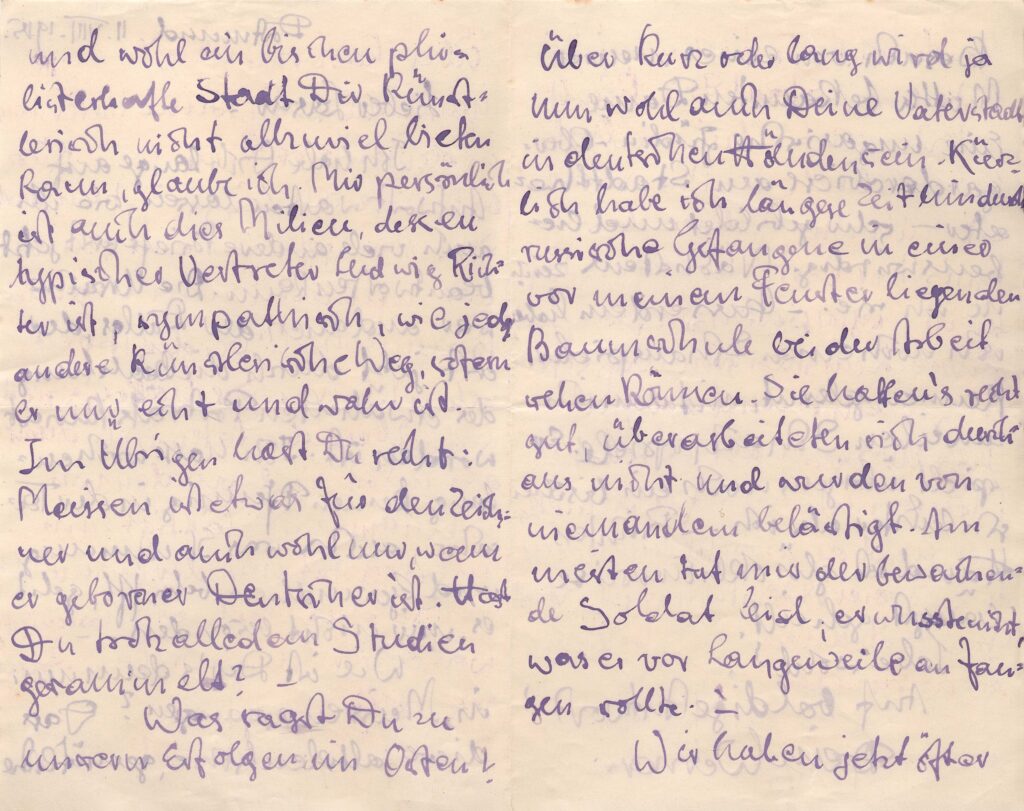 und wohl ein bischen phi-
listerhafte Stadt Dir künst-
lerisch nicht allzuviel bieten
kann, glaube ich. Mir persönlich
ist auch dies Milieu, dessen
typischer Vertreter Ludwig Rich-
ter ist, sympathisch, wie jeder
andere künstlerische Weg, sofern
er nur echt und wahr ist.
Im Übrigen hast Du recht:
Meissen ist etwas für den Zeich-
ner und auch wohl nur, wenn
er geborener Deutscher ist. Hast
Du trotz alledem Studien
gesammelt? –
Was sagst Du zu
unseren Erfolgen im Osten?
Über kurz oder lang wird ja
nun wohl auch Deine Vaterstadt
in deutschen Händen sein. Kürz-
lich habe ich längere Zeit hindurch
russische Gefangene in einer
vor meinem Fenster liegenden
Baumschule bei der Arbeit
sehen können. Sie hatten's recht
gut, überarbeiteten sich durch-
aus nicht und wurden von
niemandem belästigt. Am
meisten tat mir der bewachen-
de Soldat leid, er wusste nicht,
was er vor Langeweile anfan-
gen sollte. –
Wir haben jetzt öfter